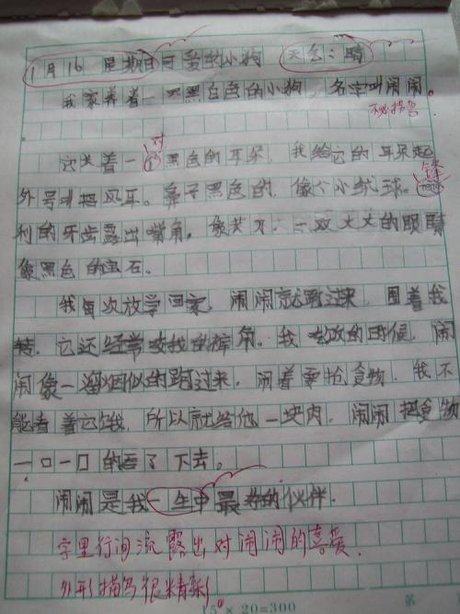 1月16 星期日 可爱的小狗 天气:晴
我家养着一只黑白色的小狗,名字叫闹闹。
不必拐弯
它长着一对黑色的耳朵,我给它的耳朵起
外号叫招风耳。鼻子黑色的,像个小绒球。锋
利的牙齿露出嘴角,像尖刀,一双大大的眼睛
像黑色的宝石。
我每次放学回家,闹闹就跑过来,围着我
转,它还经常咬我的裤角。我吃饭的时候,闹
闹像一溜烟似的跑过来,闹着要抢食物,我不
能看着它饿,所以就给他一块肉,闹闹把食物
一口一口的吞了下去。
闹闹是我一生中最好的伙伴.
字里行间流露出对闹闹的喜爱.
外形描写很精彩!
15 × 20=300 第